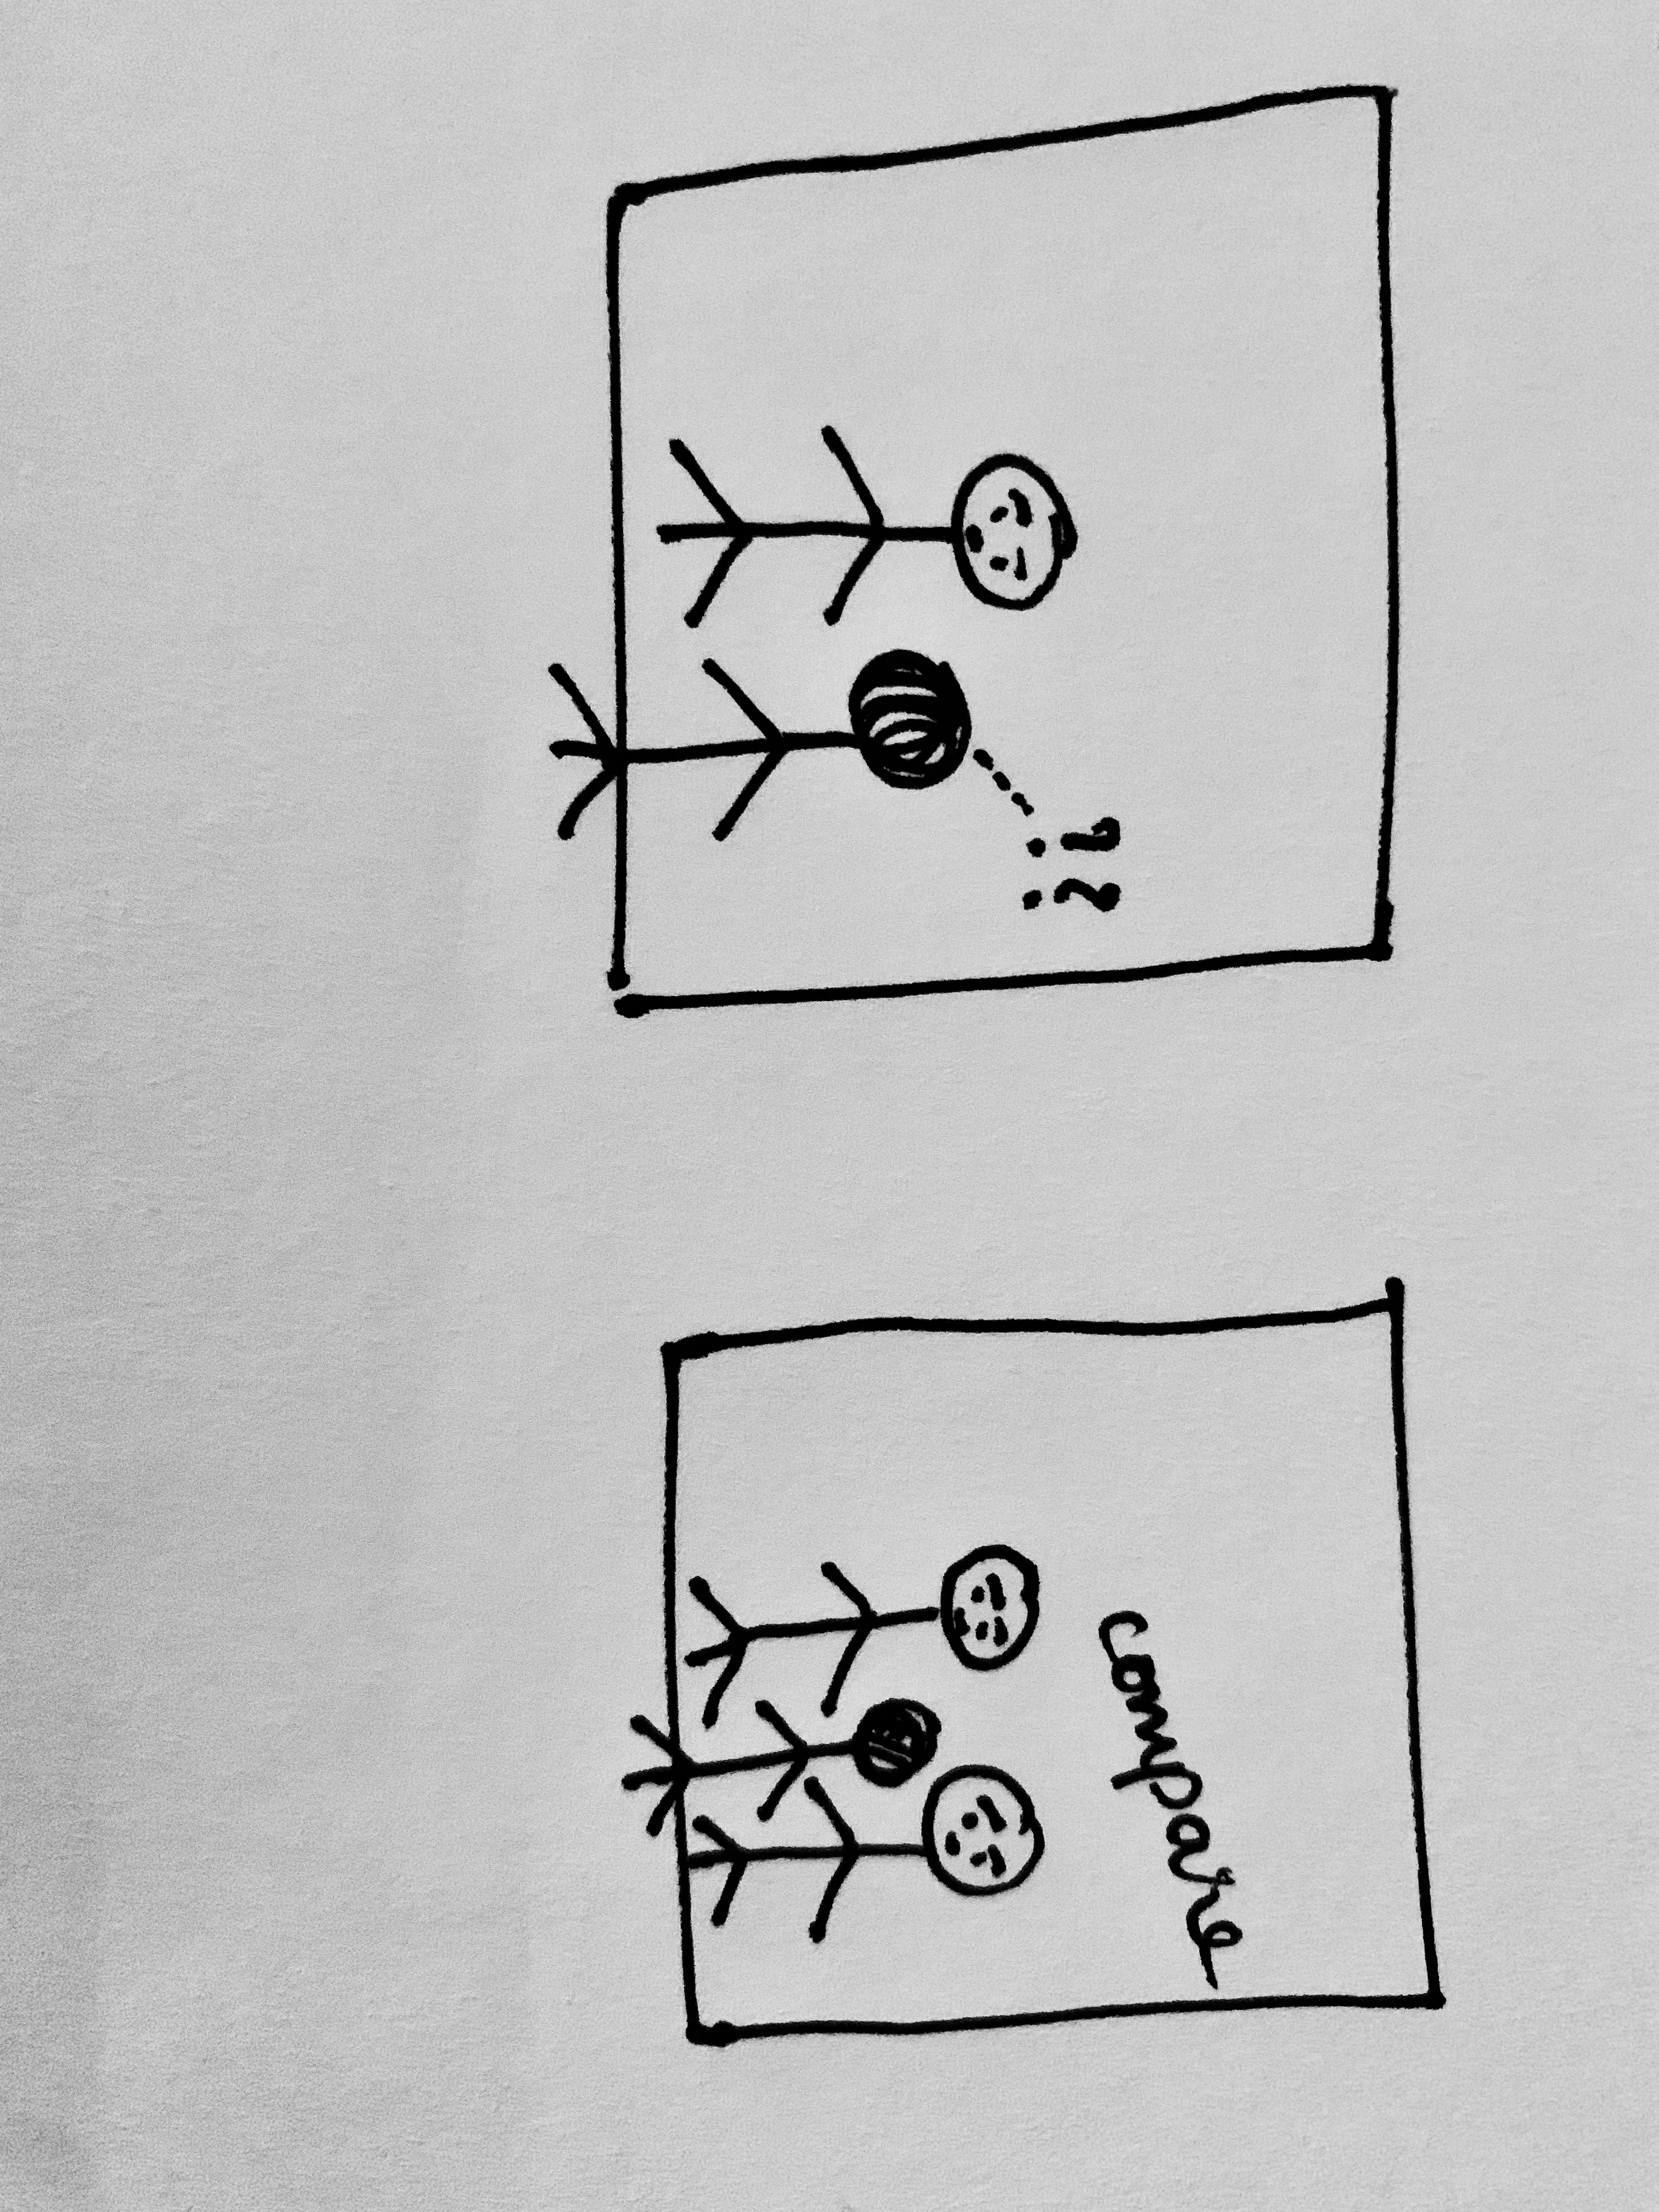 ??
compare